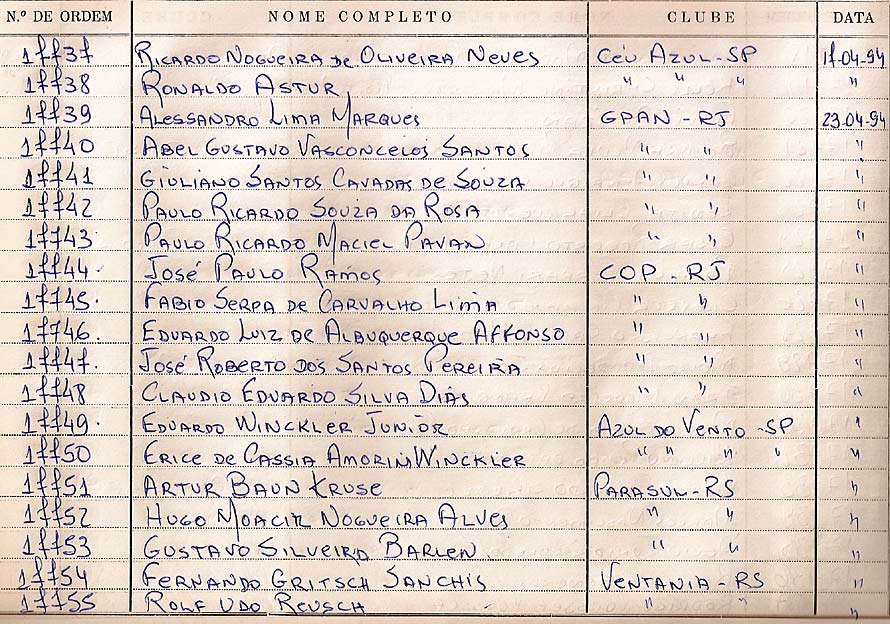 N.º DE ORDEM NOME COMPLETO CLUBE DATA
17737 Ricardo Nogueira de Oliveira Neves Céu Azul-SP 17-04-94
17738 Ronaldo Astur " " " "
17739 Alessandro Lima Marques GPAN - RJ 23-04-94
17740 Abel Gustavo Vasconcelos Santos " " "
17741 Giuliano Santos Cavadas de Souza " " "
17742 Paulo Ricardo Souza da Rosa " " "
17743 Paulo Ricardo Maciel Pavan " " "
17744 José Paulo Ramos COP - RJ "
17745 Fabio Serpa de Carvalho Lima " " "
17746 Eduardo Luiz de Albuquerque Affonso " " "
17747 José Roberto dos Santos Pereira " " "
17748 Claudio Eduardo Silva Dias " " "
17749 Eduardo Winckler Junior Azul do Vento - SP "
17750 Erice de Cassia Amorin Winckler " " " " "
17751 Artur Baun Kruse Parasul-RS "
17752 Hugo Moacir Nogueira Alves " " "
17753 Gustavo Silveira Barlen " " "
17754 Fernando Gritsch Sanchis Ventania - RS "
17755 Rolf Udo Reusch " " "